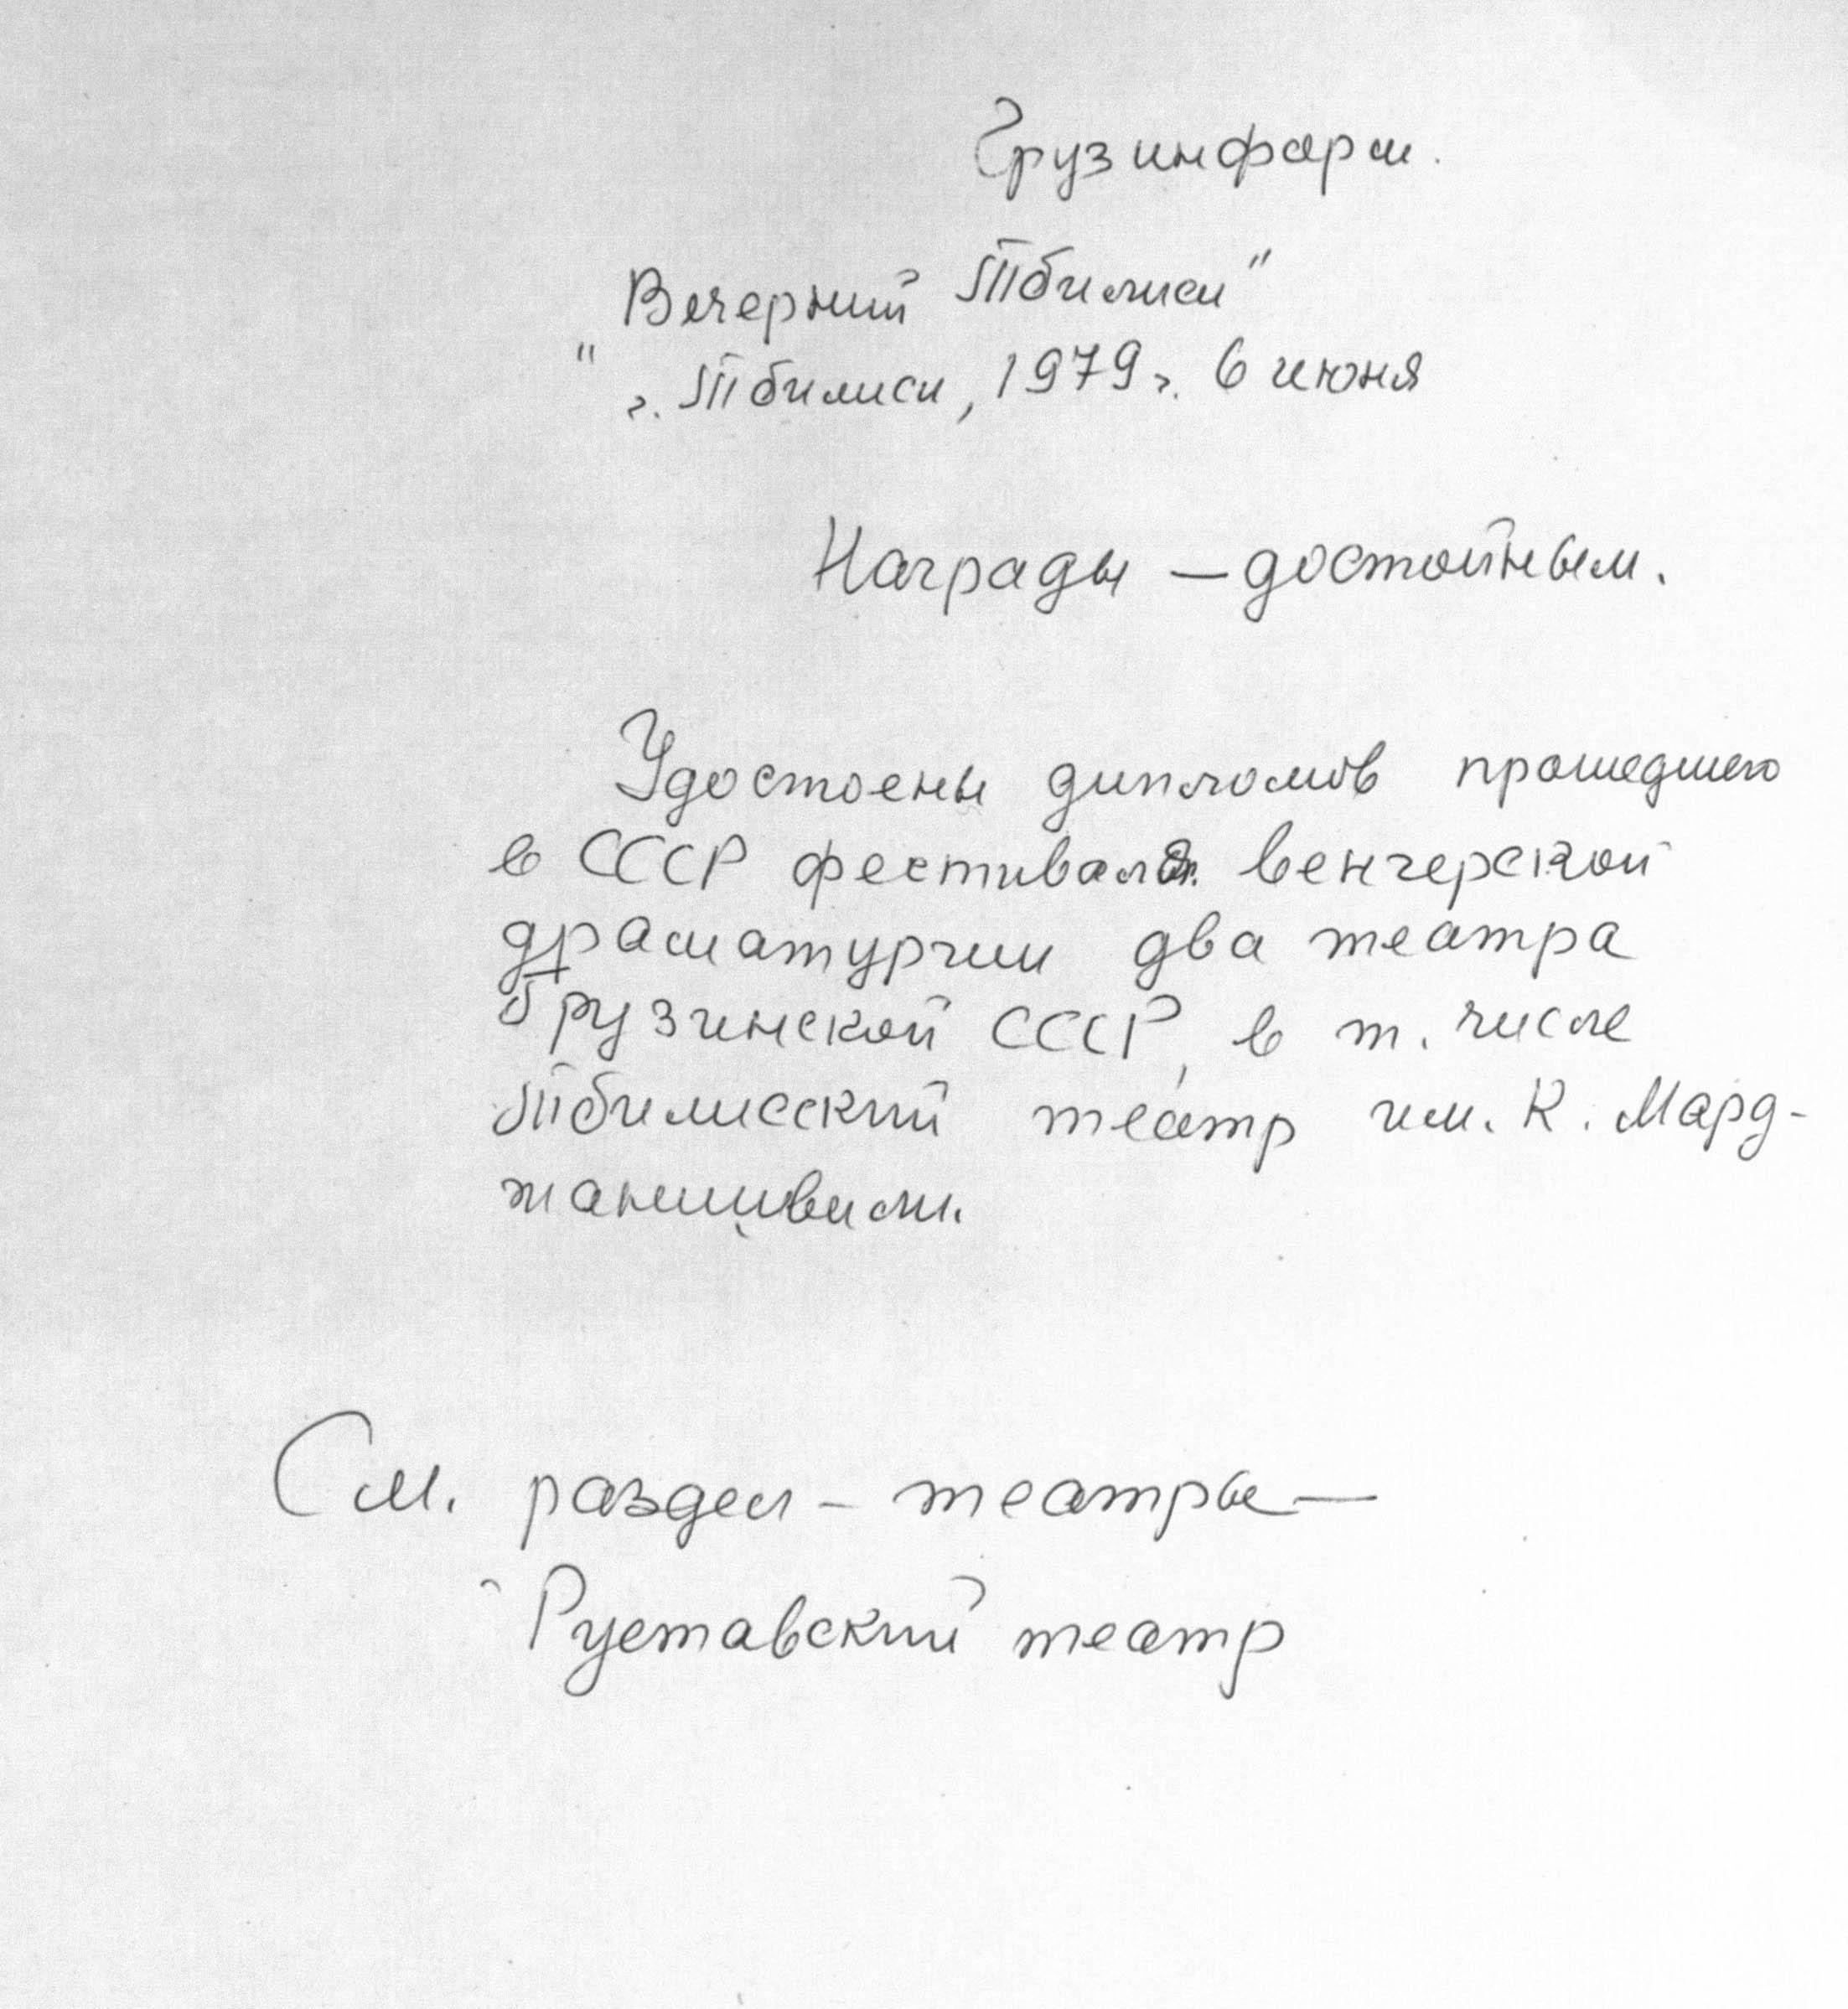 Грузинформ.
Вечерний Тбилиси"
" г. Тбилиси, 1979 г. 6 июня
Награды – достойным.
Удостоены дипломов прошедшего
в СССР фестиваля венгерской
драматургии два театра
Грузинской СССР, в т. числе
Тбилисский театр им. К. Мард-
жанишвили.
См. раздел – театры –
Руставский театр